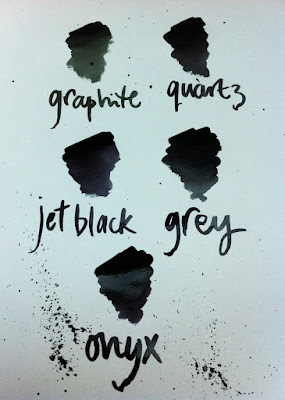 graphite quartz
jet black grey
onyx